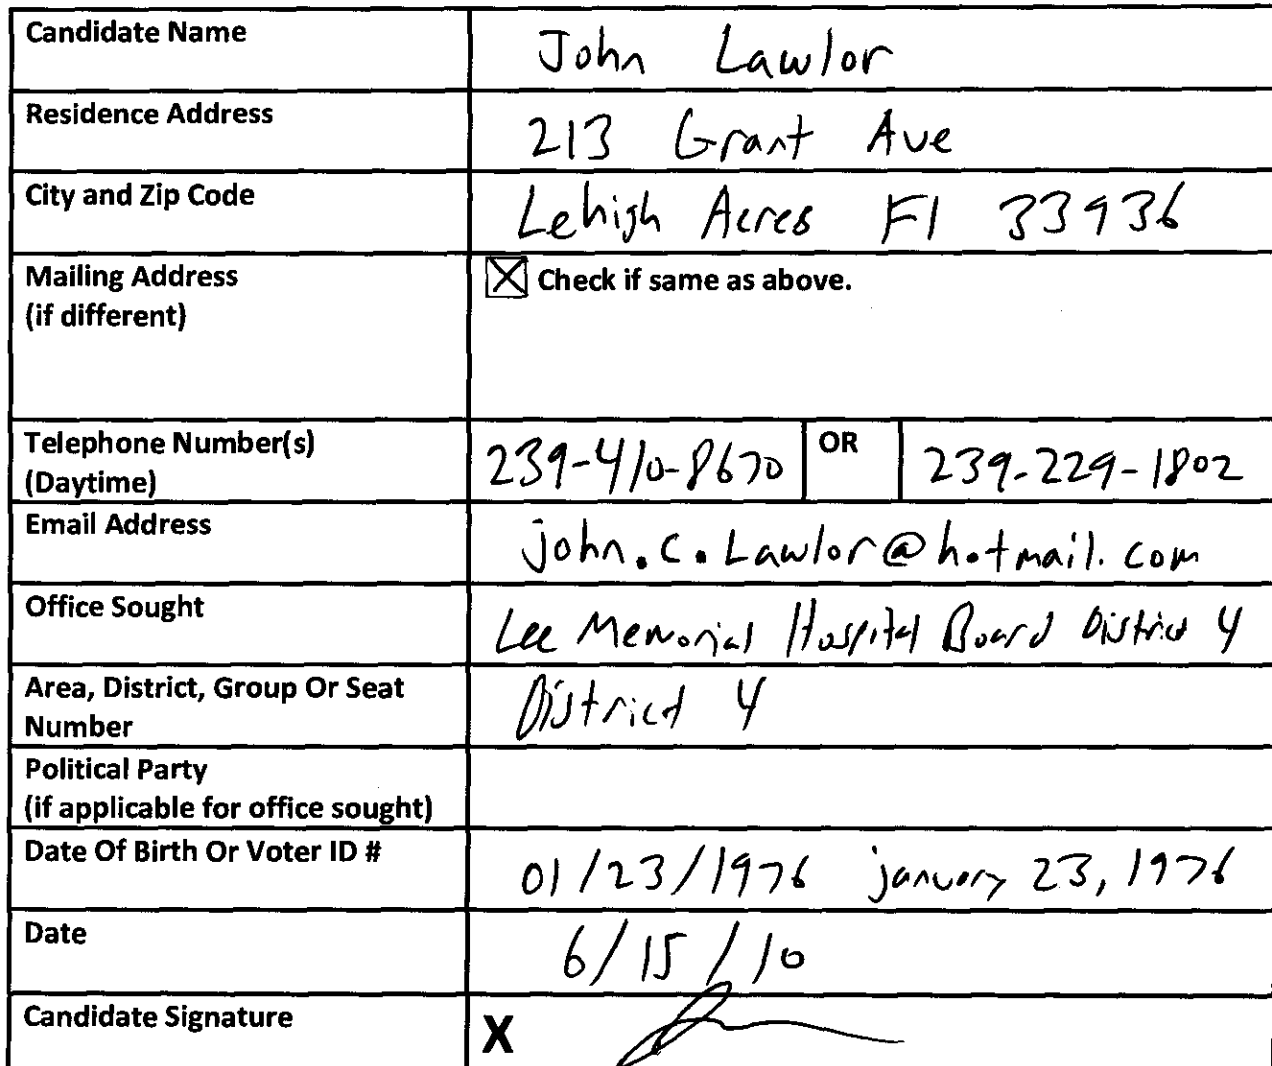 Candidate Name John Lawlor
Residence Address 213 Grant Ave
City and Zip Code Lehigh Acres Fl 33936
Mailing Address
(if different)
Check if same as above.
Telephone Number(s)
(Daytime)
239-410-8670 OR 239-229-1802
Email Address john.c.Lawlor@hotmail.com
Office Sought Lee Memorial Hospital Board District 4
Area, District, Group Or Seat
Number
District 4
Political Party
(if applicable for office sought)
Date Of Birth Or Voter ID # 01/23/1976 january 23, 1976
Date 6/15/10
Candidate Signature X